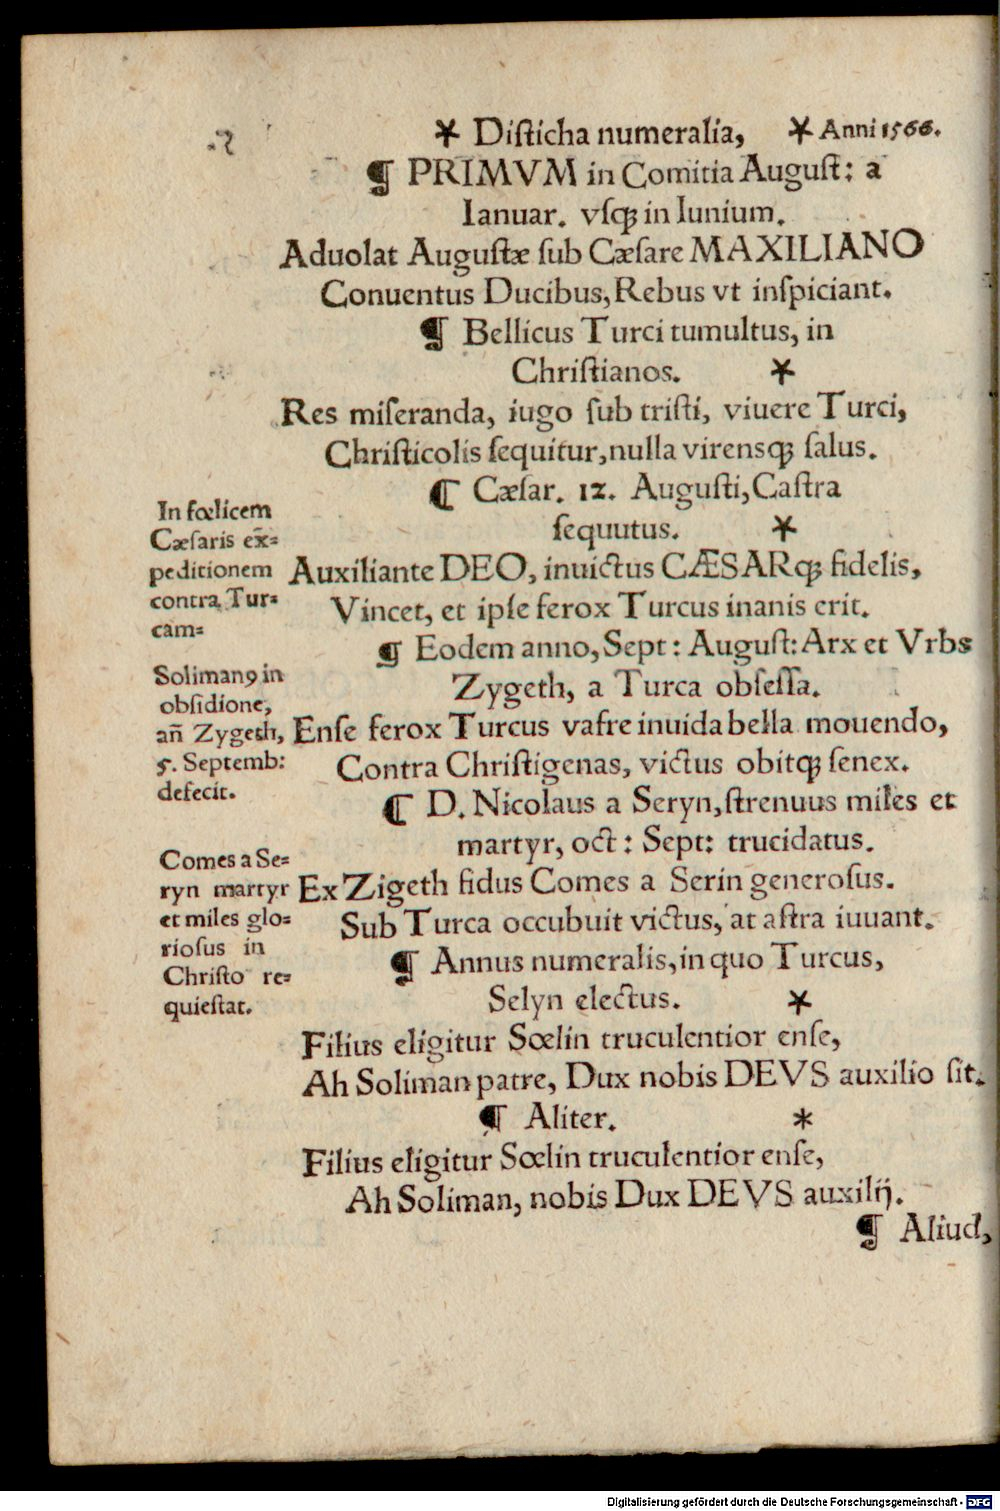 * Disticha numeralia, * Anni 1566.
¶ PRIMVM in Comitia August: a
Ianuar. vsq́; in Iunium.
Aduolat Augustæ sub Cæsare MAXILIANO
Conuentus Ducibus, Rebus vt inspiciant.
¶ Bellicus Turci tumultus, in
Christianos. *
Res miseranda, iugo sub tristi, viuere Turci,
Christicolis sequitur, nulla virensq́; salus.
¶ Cæsar. 12. Augusti, Castra
sequutus. *
In fœlicem
Cæsaris ex̃=
peditionem
contra Tur=
cam=
Auxiliante DEO, inuictus CÆSARq́; fidelis,
Vincet, et ipse ferox Turcus inanis erit.
¶ Eodem anno, Sept: August: Arx et Vrbs
Zygeth, a Turca obsessa.
Solimanꝰ in
obsidione,
añ Zygeth,
5. Septemb:
defecit.
Ense ferox Turcus vafre inuida bella mouendo,
Contra Christigenas, victus obitq́; senex.
¶ D. Nicolaus a Seryn, strenuus miles et
martyr, oct: Sept: trucidatus.
Comes a Se=
ryn martyr
et miles glo=
riosus in
Christo re=
quiestat.
Ex Zigeth fidus Comes a Serin generosus.
Sub Turca occubuit victus, at astra iuuant.
¶ Annus numeralis, in quo Turcus,
Selyn electus. *
Filius eligitur Sœlin truculentior ense,
Ah Soliman patre, Dux nobis DEVS auxilio sit.
¶ Aliter. *
Filius eligitur Sœlin truculentior ense,
Ah Soliman, nobis Dux DEVS auxilij.
¶ Aliud,
Digitalisierung gefördert durch die Deutsche Forschungsgemeinschaft - DFG